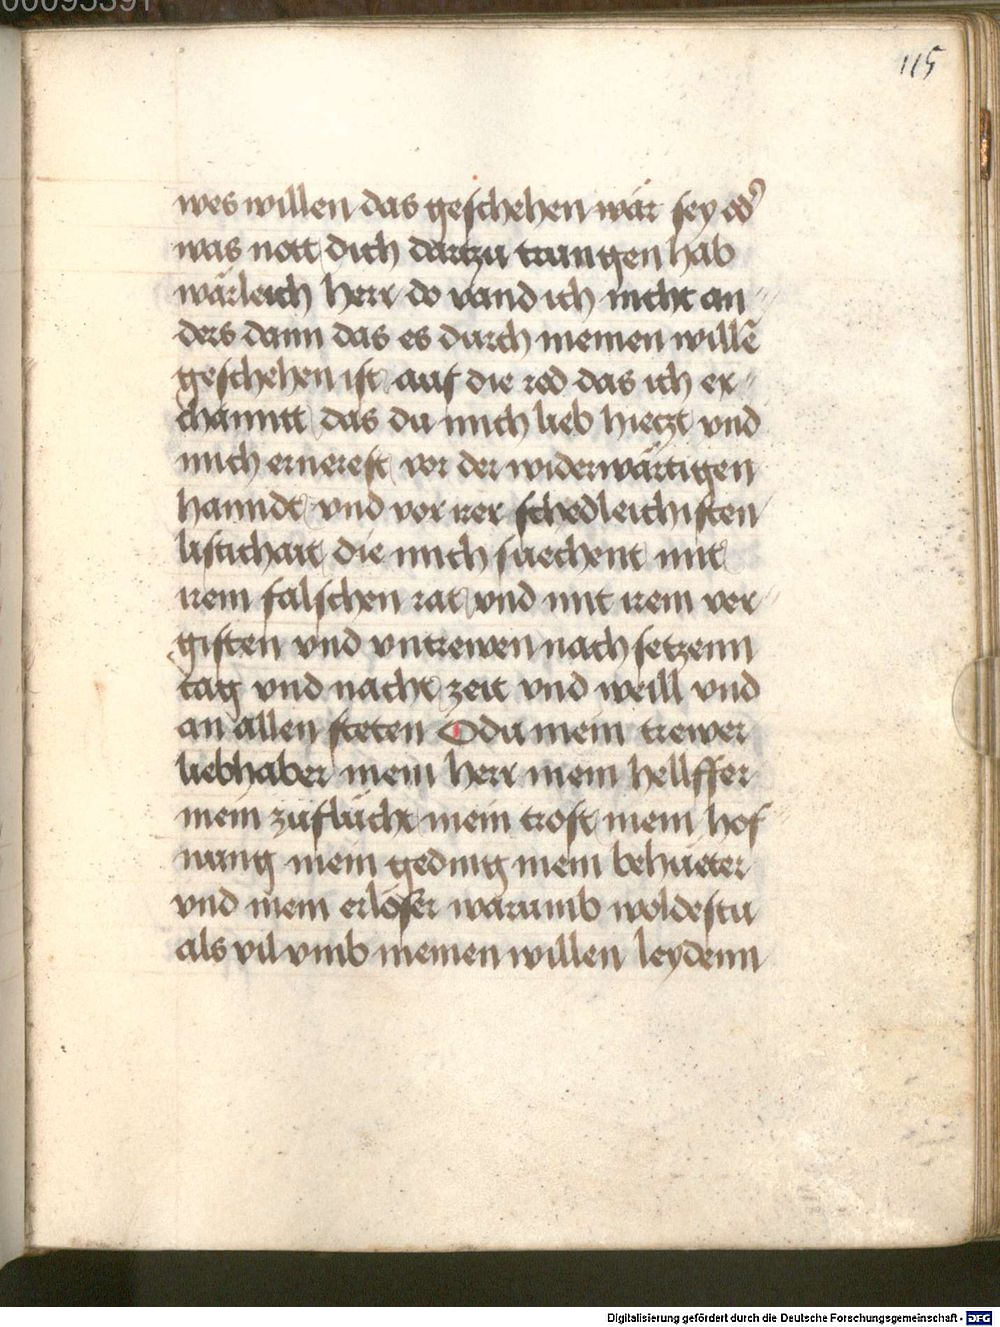 00095391
115
wes willen das geschehen wär sey od᷑
was nott dich dartzu trungen hab
wärleich herr do vand ich nicht an-
ders dann das es durch meinen willē
geschehen ist auf die red das ich er-
channtt das du mich lieb hietzt vnd
mich ernerest vor der widerwärtigen
hanndt vnd vor irer schedleichisten
listichait die mich suechent mit
irem falschen rat vnd mit irem ver-
giften vnd vntrewen nach setzenn
tag vnd nacht zeit vnd weill vnd
an allen steten O du mein trewer
liebhaber mein herr mein hellffer
mein zuflücht mein trost mein hof
nung mein geding mein behueter
vnd mein erlöser warumb woldestu
als vil vmb meinen willen leydenn
Digitalisierung gefördert durch die Deutsche Forschungsgemeinschaft - DFG